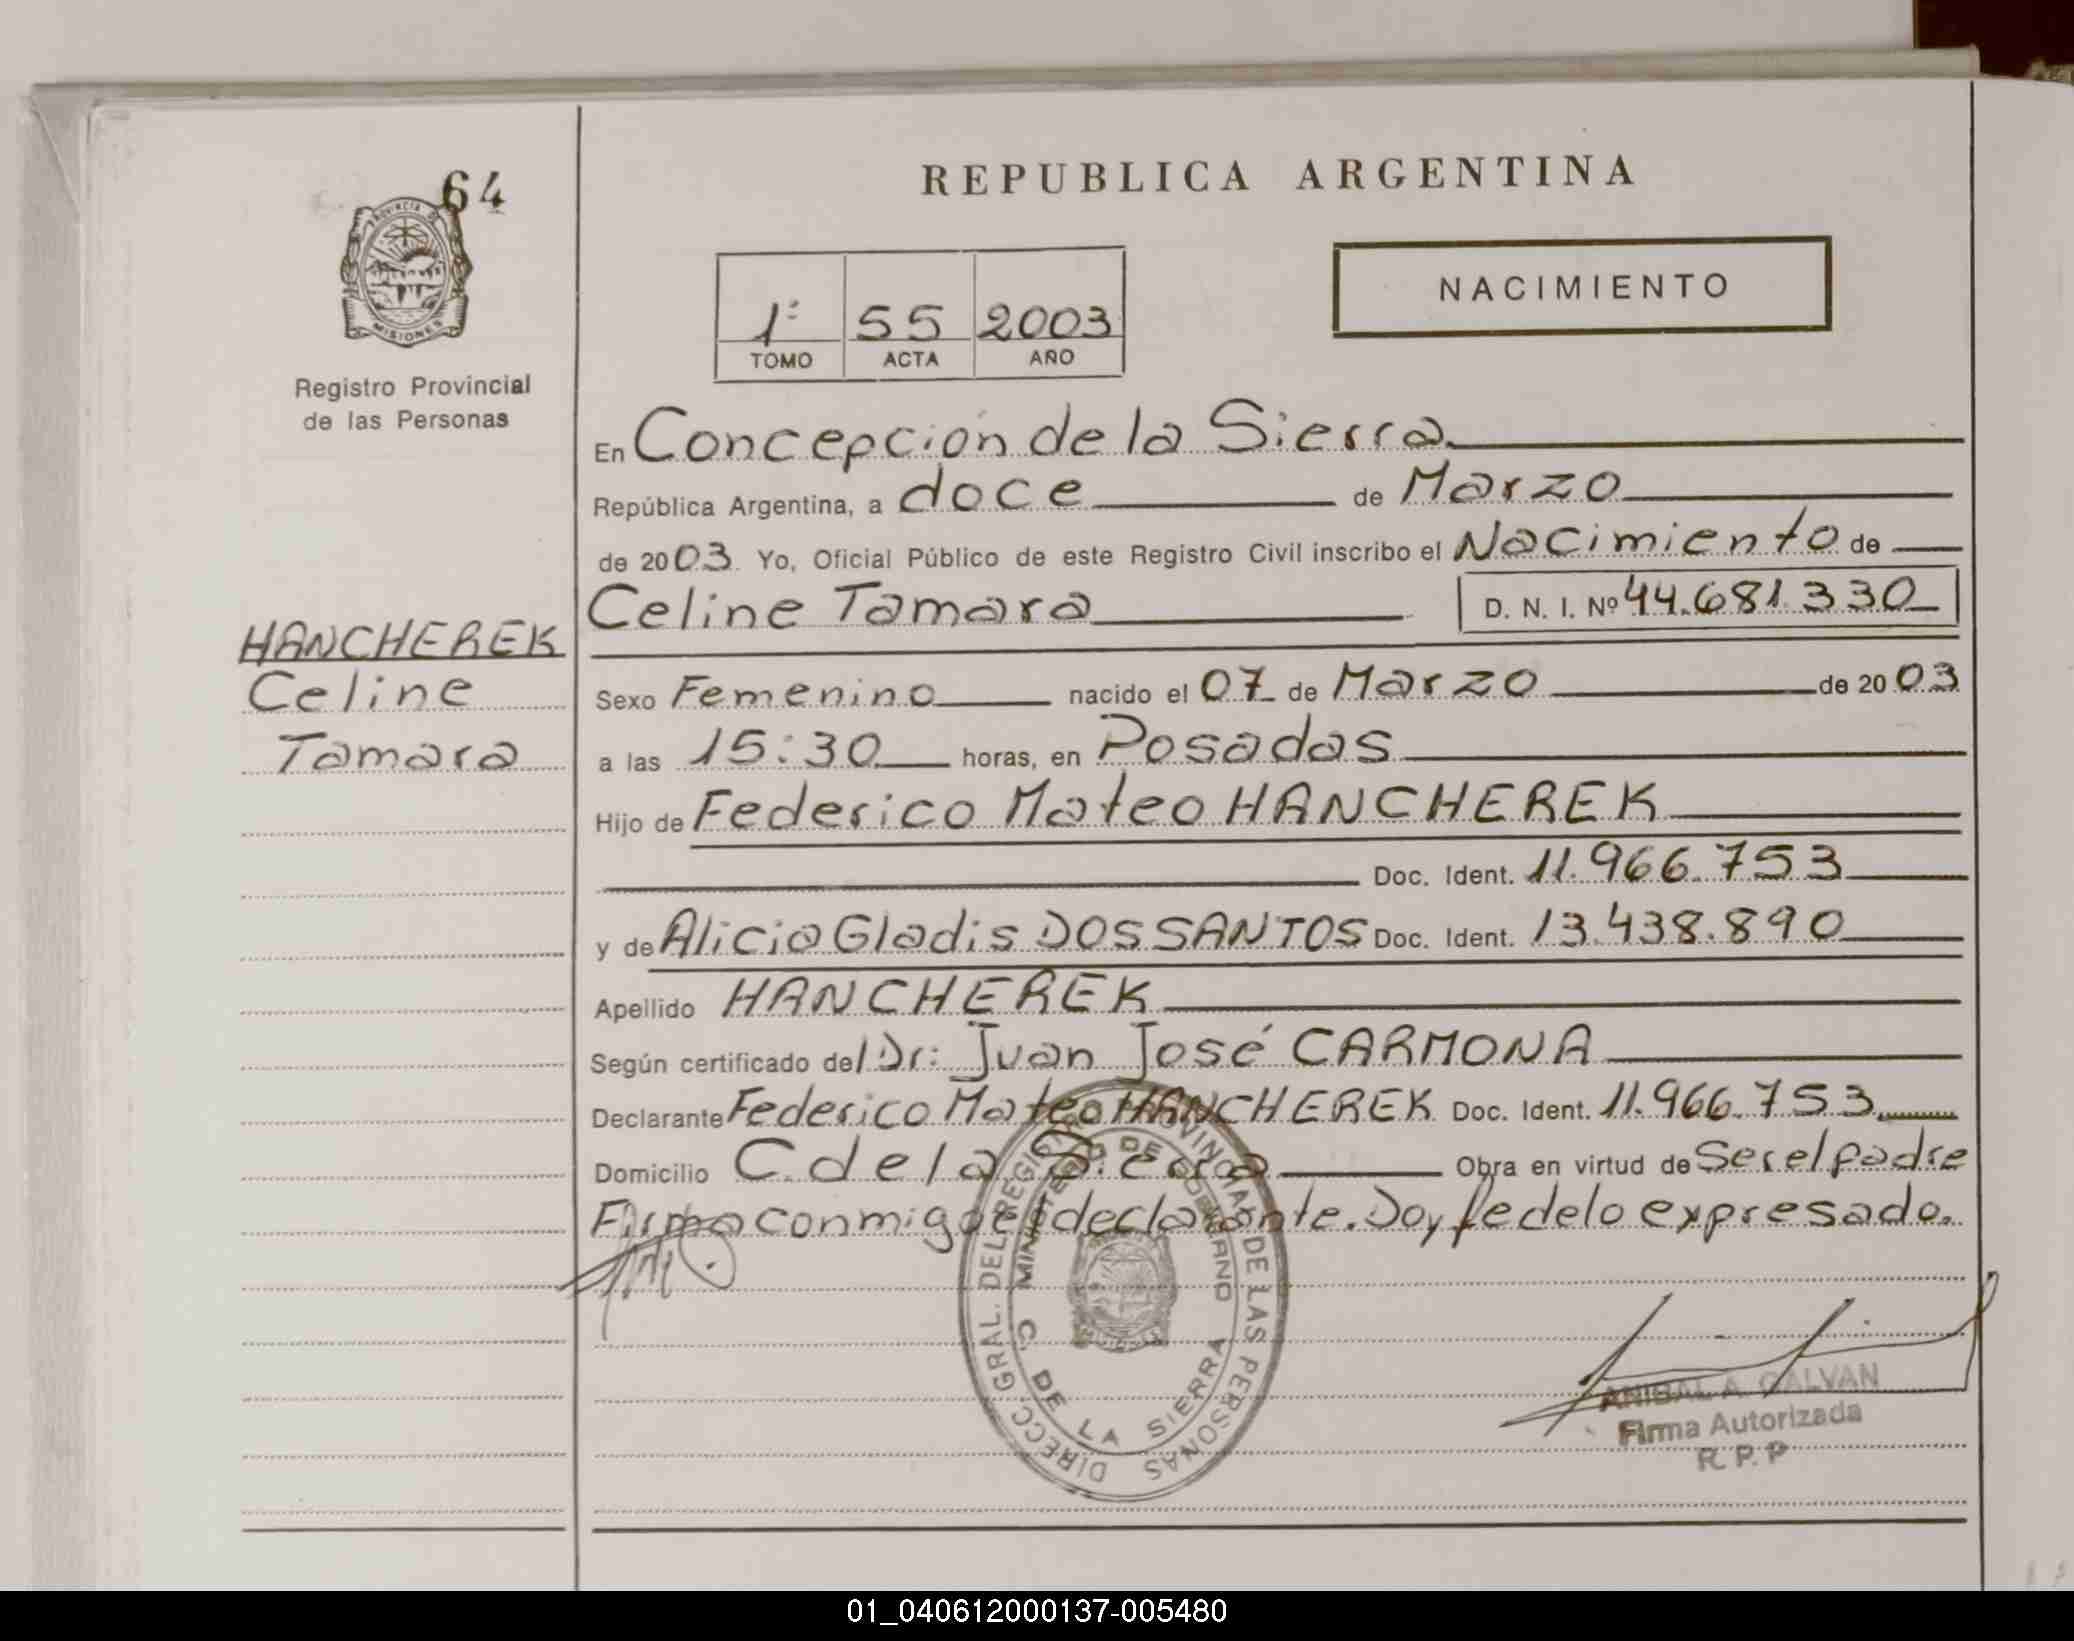 64
PROVINCIA DE
MISIONES
Registro Provincial
de las Personas
HANCHEREK
Celine
Tamara
REPUBLICA ARGENTINA
NACIMIENTO
1º 55 2003
TOMO ACTA AÑO
En Concepción de la Sierra
República Argentina, a doce de Marzo
de 2003 Yo, Oficial Público de este Registro Civil inscribo el Nacimiento de
Celine Tamara D. N. I. Nº 44.681.330
Sexo Femenino nacido el 07 de Marzo de 2003
a las 15:30 horas, en Posadas
Hijo de Federico Mateo HANCHEREK
Doc. Ident. 11.966.753
y de Alicia Gladis DOS SANTOS Doc. Ident. 13.438.890
Apellido HANCHEREK
Según certificado del Dr: Juan José CARMONA
Declarante Federico Mateo HANCHEREK Doc. Ident. 11.966.753
Domicilio C. de la Sierra Obra en virtud de Ser el padre
Firma conmigo el declarante. Doy fe de lo expresado.
DIRECC. GRAL. DEL REGISTRO PROVINCIAL DE LAS PERSONAS
MINISTERIO DE GOBIERNO
C. DE LA SIERRA
ANIBAL A. GALVAN
Firma Autorizada
R. P. P
01_040612000137-005480